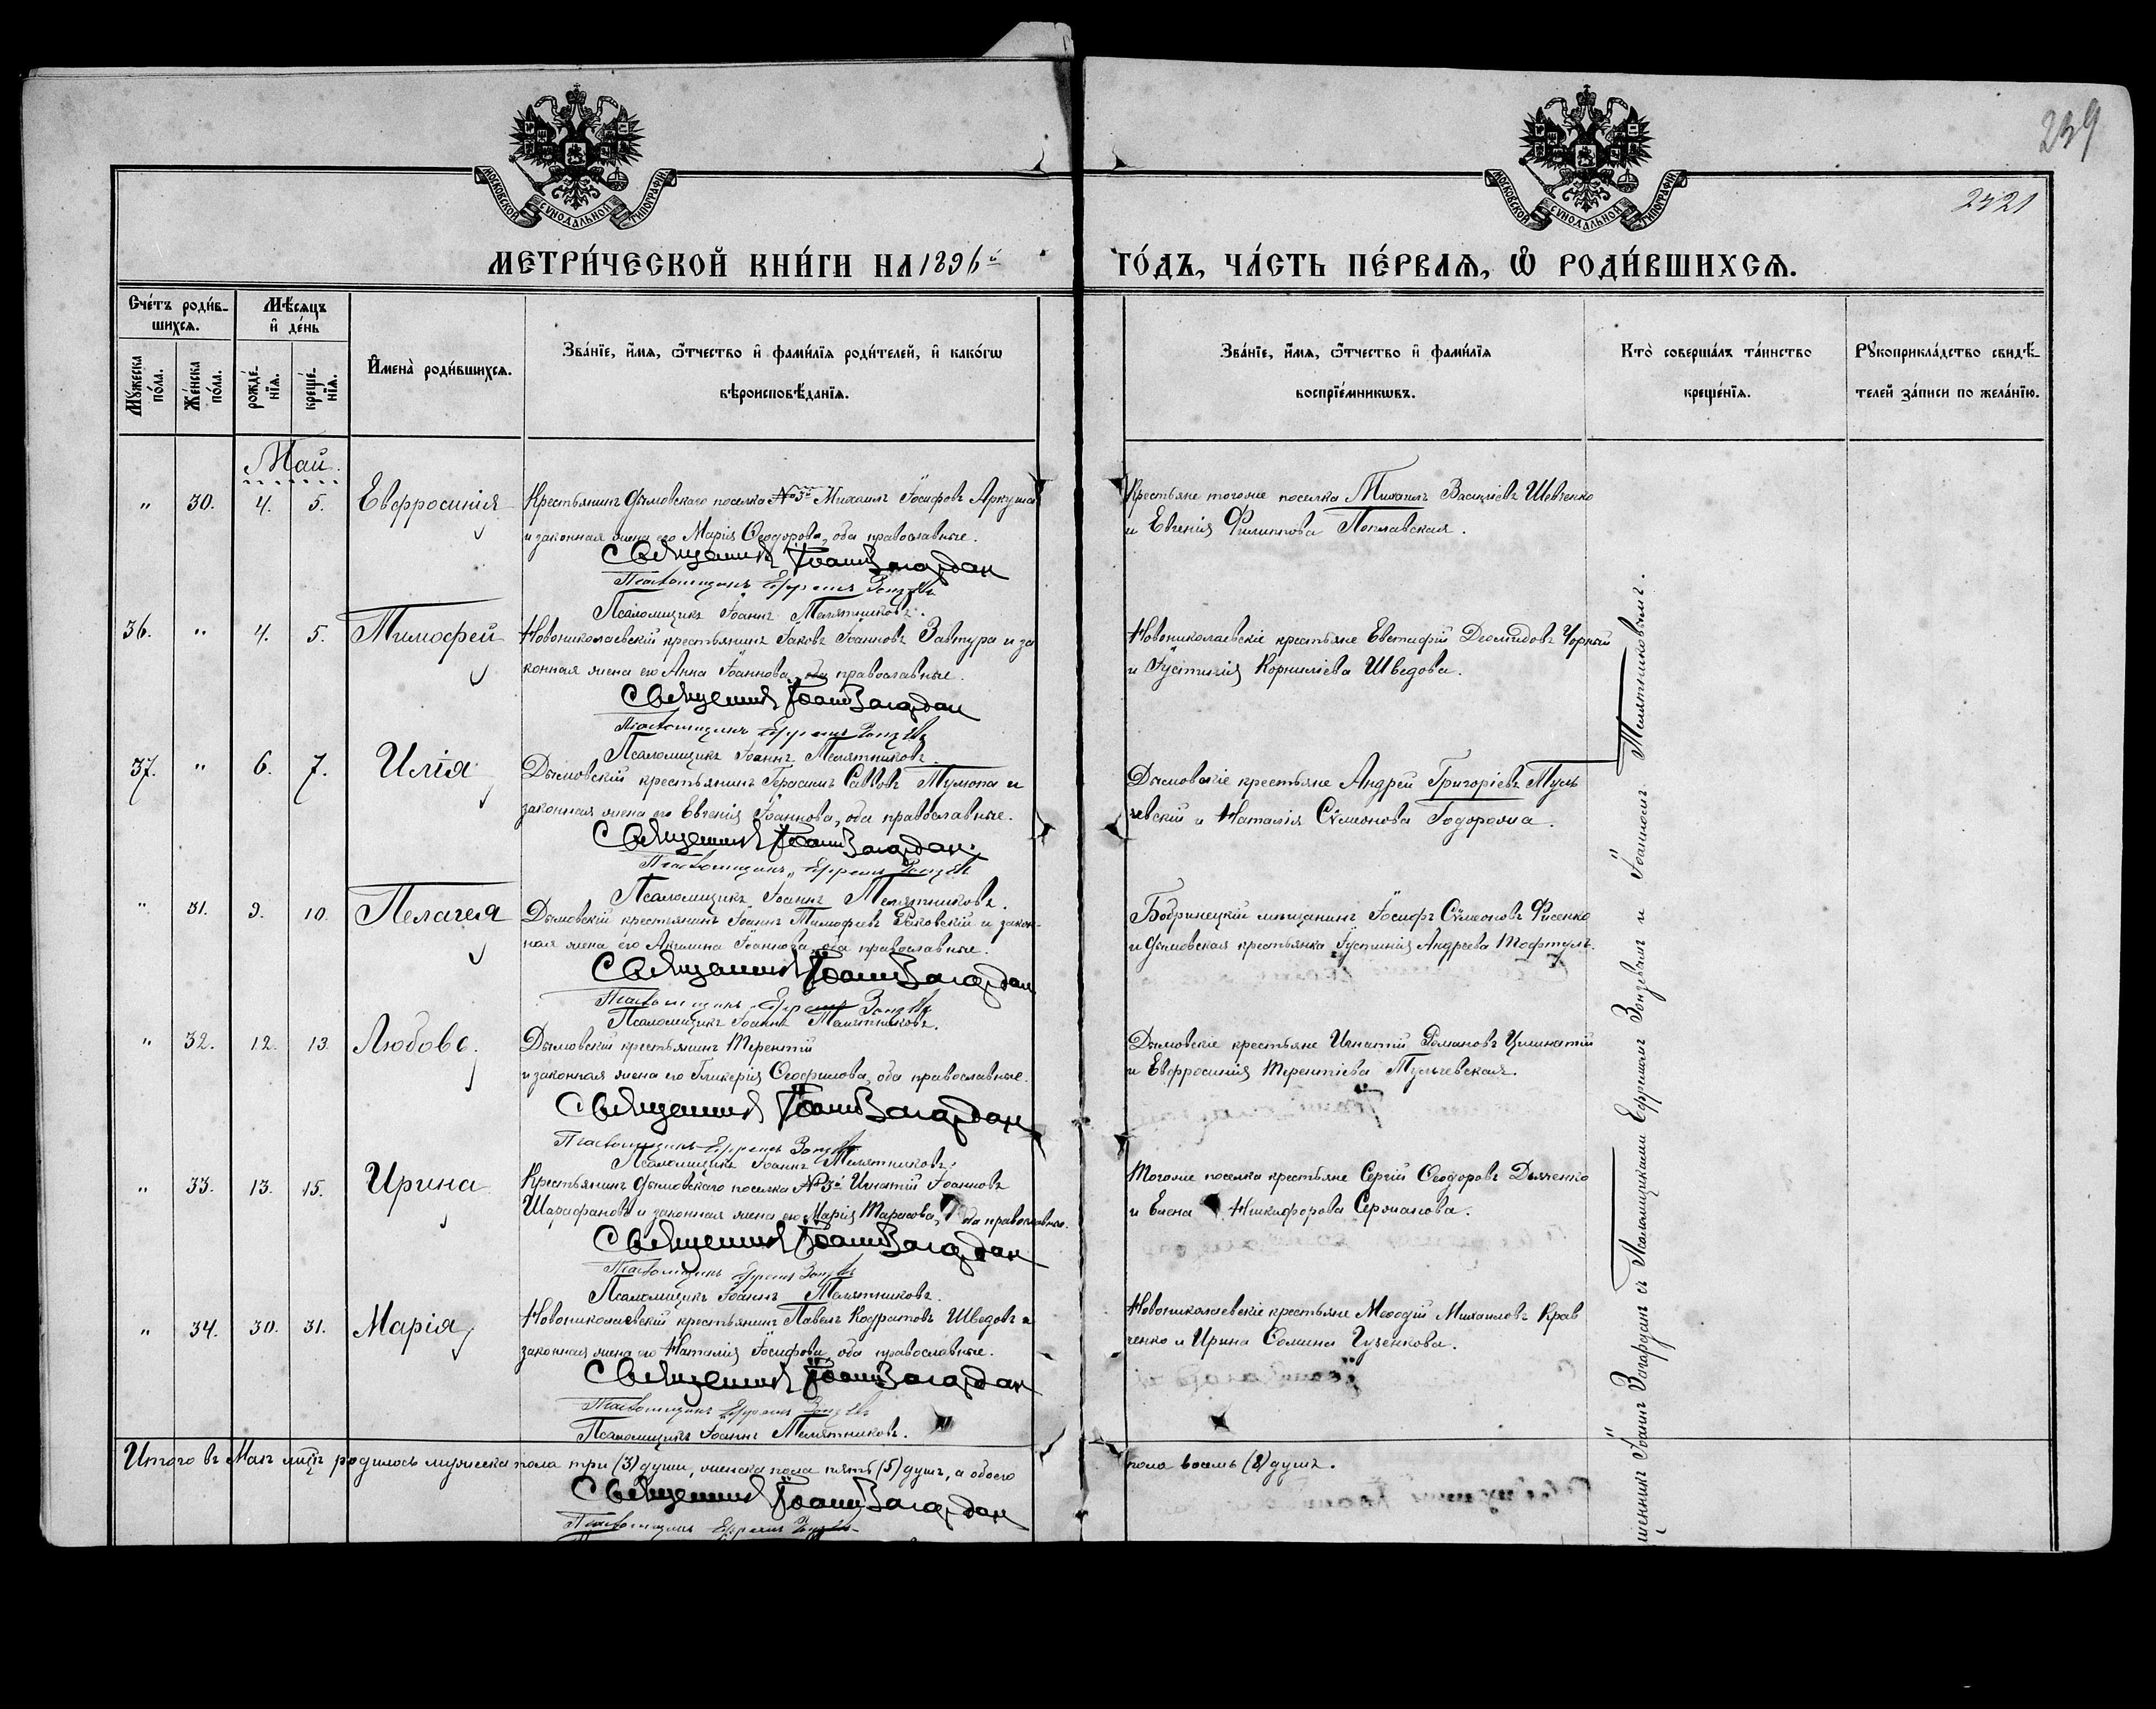 239
2421
МОСКОВСКОЙ СѴНОДАЛЬНОЙ ТИПОГРАФІИ
МОСКОВСКОЙ СѴНОДАЛЬНОЙ ТИПОГРАФІИ
МЕТРИ́ЧЕСКОЙ КНИ́ГИ НА 1896й
ГО́ДЪ, ЧА́СТЬ ПЕ́РВАѦ, Ѡ҆ РОДИ́ВШИХСѦ.
Сче́тъ роди́в-
шихсѧ.
Мѣ́сѧцъ
и҆ де́нь
Мꙋ́жеска по́ла.
Же́нска по́ла.
рожде́нїѧ.
креще́нїѧ.
И҆мена̀ роди́вшихсѧ.
Зва́нїе, и҆́мѧ, ѻ҆́тчество и҆ фами́лїѧ роди́телей, и҆ како́гѡ
вѣроисповѣ́данїѧ.
Зва́нїе, и҆́мѧ, ѻ҆́тчество и҆ фами́лїѧ
воспрїе́мникѡвъ.
Кто̀ соверша́лъ та́инство
креще́нїѧ.
Рꙋкоприкла́дство свидѣ́-
телей за́писи по жела́нїю.
Май.
" 30. 4. 5. Евфросинія
Крестьянинъ Дымовскаго поселка №3й Михаилъ Іосифовъ Аркуша
и законная жена его Марія Ѳеодорова, оба православные.
Священникъ Іоаннъ Вагардан
Псаломщикъ Ефремъ
Псаломщикъ Іоаннъ Телятниковъ.
Крестьяне тогоже поселка Михаилъ Василіевъ Шевченко
и Евгенія Филиппова Поплавская.
36. " 4. 5. Тимофей
Новониколаевскій крестьянинъ Іаковъ Іоанновъ Завтура и за
конная жена его Анна Іоаннова, оба православные.
Священникъ Іоаннъ Вагардан
Псаломщикъ Ефремъ
Псаломщикъ Іоаннъ Телятниковъ.
Новониколаевскіе крестьяне Евстафій Діомидовъ Чорный
и Іустинія Корниліева Шведова.
37. " 6. 7. Илія
Дымовскій крестьянинъ Герасимъ Саввовъ и
законная жена его Евгенія Іоаннова, оба православные.
Священникъ Іоаннъ Вагардан
Псаломщикъ Ефремъ
Псаломщикъ Іоаннъ Телятниковъ.
Дымовскіе крестьяне Андрей Григоріевъ Туль
чевскій и Наталія Сѵмеонова Годорожа.
" 31. 9. 10. Пелагея
Дымовскій крестьянинъ Іоаннъ Тимофеевъ Раковскій и закон-
ная жена его Акилина Іоаннова, оба православные.
Священникъ Іоаннъ Вагардан
Псаломщикъ Ефремъ
Псаломщикъ Іоаннъ Телятниковъ.
Бобринецкій мѣщанинъ Іосифъ Сѵмеоновъ Фисенко
и Дымовская крестьянка Іустинія Андреева Тофтулъ.
" 32. 12. 13. Любовь.
Дымовскій крестьянинъ Терентій
и законная жена его Гликерія Ѳеофилова, оба православные.
Священникъ Іоаннъ Вагардан
Псаломщикъ Ефремъ
Псаломщикъ Іоаннъ Телятниковъ.
Дымовскіе крестьяне Игнатій Романовъ
и Евфросинія Терентіева Тульчевская.
" 33. 13. 15. Ирина
Крестьянинъ Дымовскаго поселка №3й Игнатій Іоанновъ
Шарафановъ и законная жена его Марія Тарасова, оба православные.
Священникъ Іоаннъ Вагардан
Псаломщикъ Ефремъ
Псаломщикъ Іоаннъ Телятниковъ.
Тогоже поселка крестьяне Сергій Ѳеодоровъ Дьяченко
и Елена Никифорова Сержанова.
" 34. 30. 31. Марія
Новониколаевскій крестьянинъ Павелъ Кодратовъ Шведовъ и
законная жена его Наталія Іосифова, оба православные.
Священникъ Іоаннъ Вагардан
Псаломщикъ Ефремъ
Псаломщикъ Іоаннъ Телятниковъ.
Новониколаевскіе крестьяне Меѳодій Михаиловъ Крав
ченко и Ирина Ѳомина Гузенкова.
Священникъ Іоаннъ Вагарданъ съ Псаломщиками Ефремомъ и Іоанномъ Телятниковымъ.
Итого въ Маѣ мцѣ родилось мужеска пола три (3) души, женска пола пять (5) душъ, а обоего
пола восемь (8) душъ.
Священникъ Іоаннъ Вагардан
Псаломщикъ Ефремъ